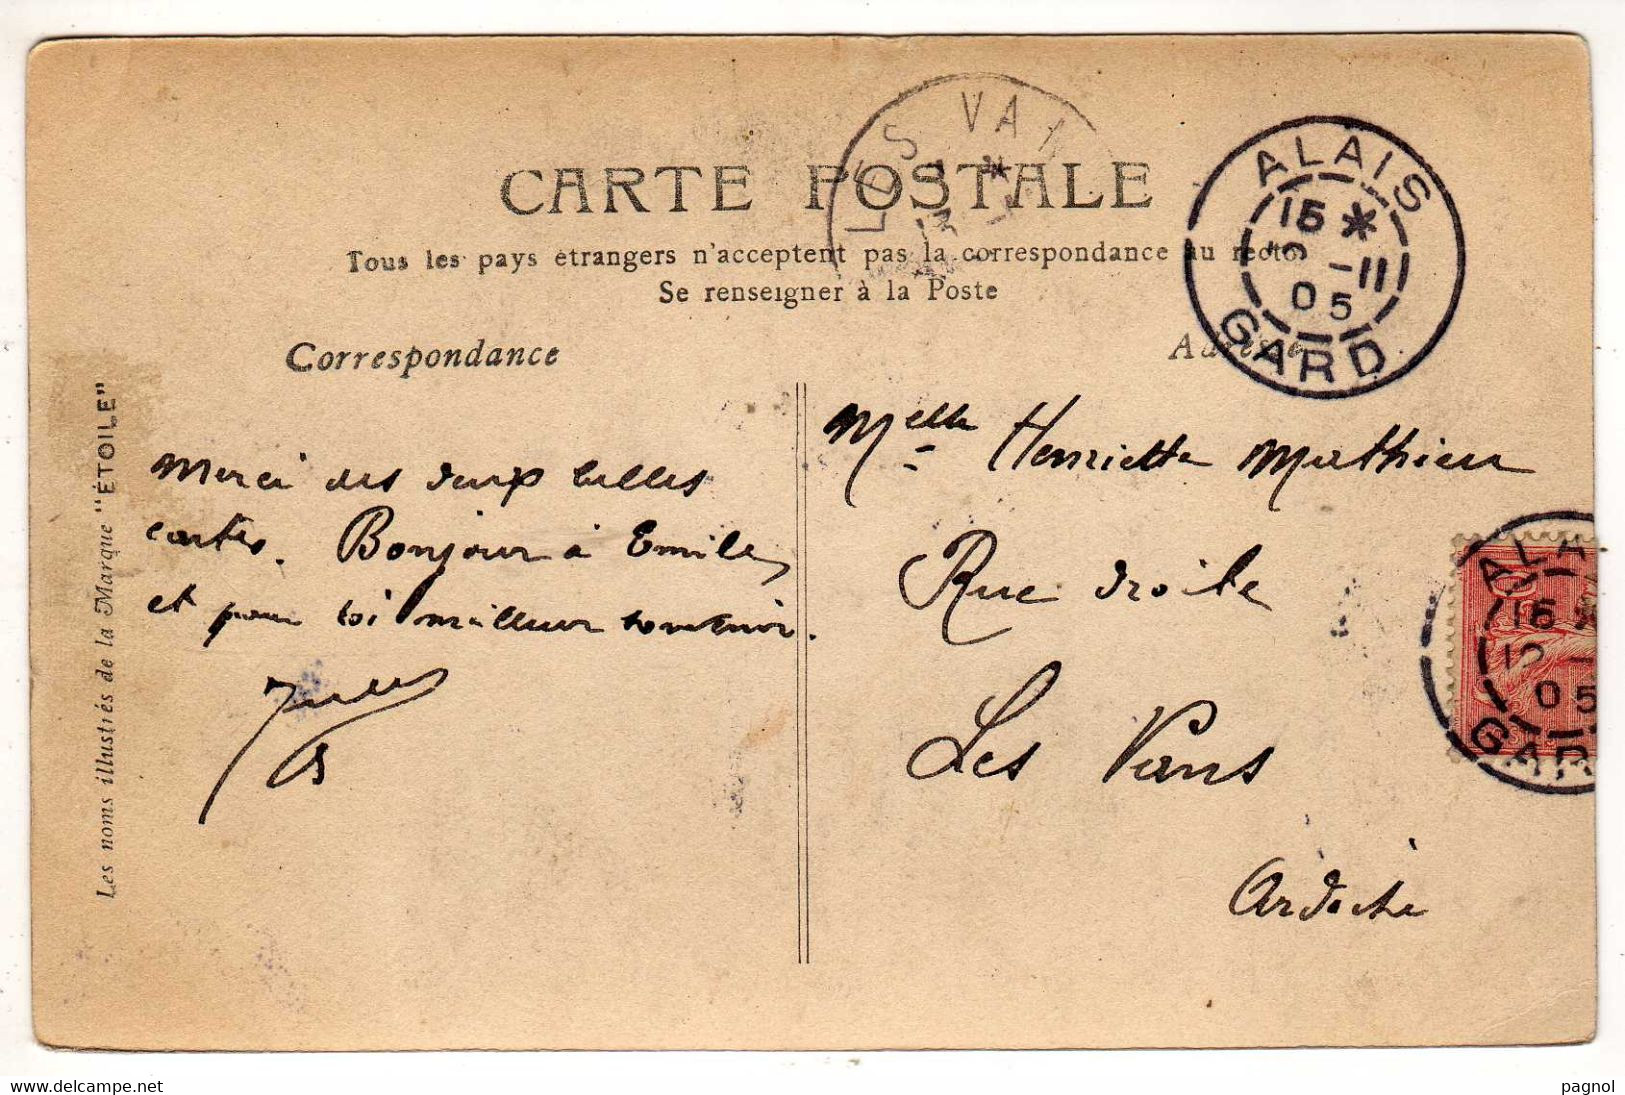 CARTE POSTALE
Tous les pays étrangers n'acceptent pas la correspondance au recto
Se renseigner à la Poste
LES VA
ALAIS
15 *
-11
05
GARD
Correspondance
Adresse
Merci des deux belles
cartes. Bonjour à Emile,
et pour toi meilleur souvenir.
Jules
Melle Henriette Mathieu
Rue droite
Les Vans
Ardèche
ALA
15 *
12 -
05
GAR
Les noms illustrés de la Marque "ÉTOILE"
www.delcampe.net
pagnol